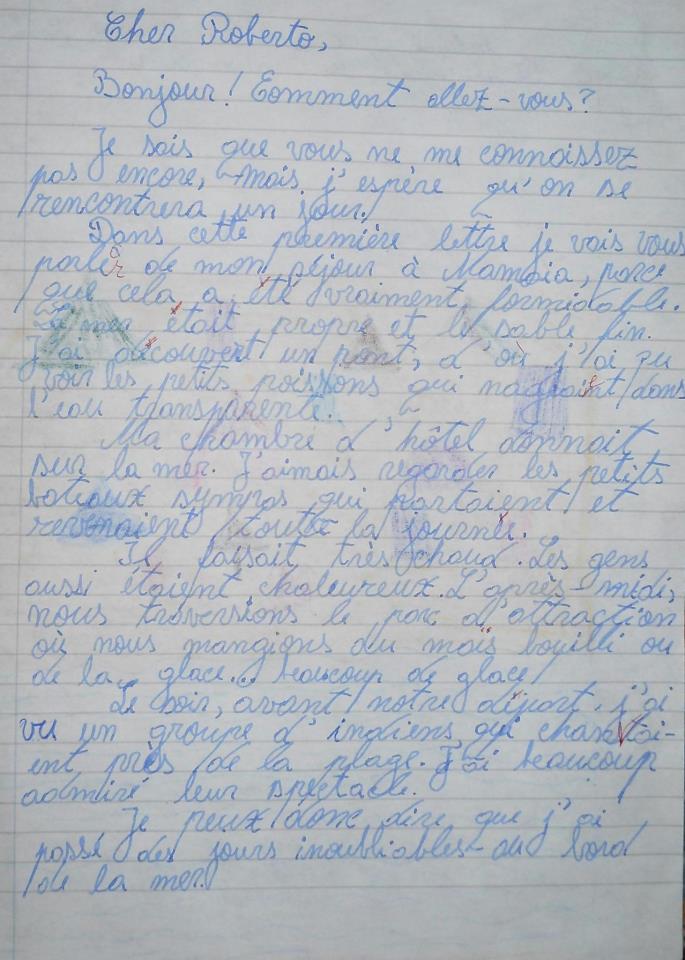 Cher Roberto,
Bonjour! Comment allez-vous?
Je sais que vous ne me connaissez
pas encore, mais j'espère qu'on se
rencontrera un jour.
Dans cette première lettre je vais vous
parler de mon séjour à Mamaia, parce
que cela a été vraiment formidable.
La mer était propre et le sable fin.
J'ai découvert un pont, d'où j'ai pu
voir les petits poissons qui nageaient dans
l'eau transparente.
Ma chambre d'hôtel donnait
sur la mer. J'aimais regarder les petits
bateaux sympas qui partaient et
revenaient toute la journée.
Il faisait très chaud. Les gens
aussi étaient chaleureux. L'après-midi,
nous traversions le parc d'attraction
où nous mangions du maïs bouilli ou
de la glace... beaucoup de glace!
Le soir, avant notre départ, j'ai
vu un groupe d'indiens qui chantai-
ent près de la plage. J'ai beaucoup
admiré leur spectacle.
Je peux donc dire que j'ai
passé des jours inoubliables au bord
de la mer.